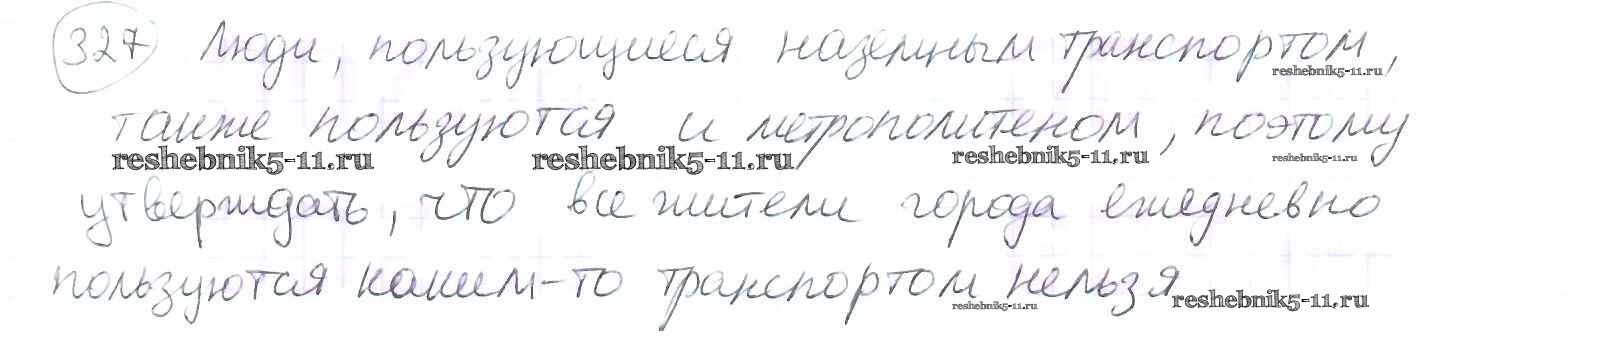 327 Люди, пользующиеся наземным транспортом,
reshebnik5-11.ru
также пользуются и метрополитеном, поэтому
reshebnik5-11.ru reshebnik5-11.ru reshebnik5-11.ru reshebnik5-11.ru
утверждать, что все жители города ежедневно
пользуются каким-то транспортом нельзя
reshebnik5-11.ru reshebnik5-11.ru